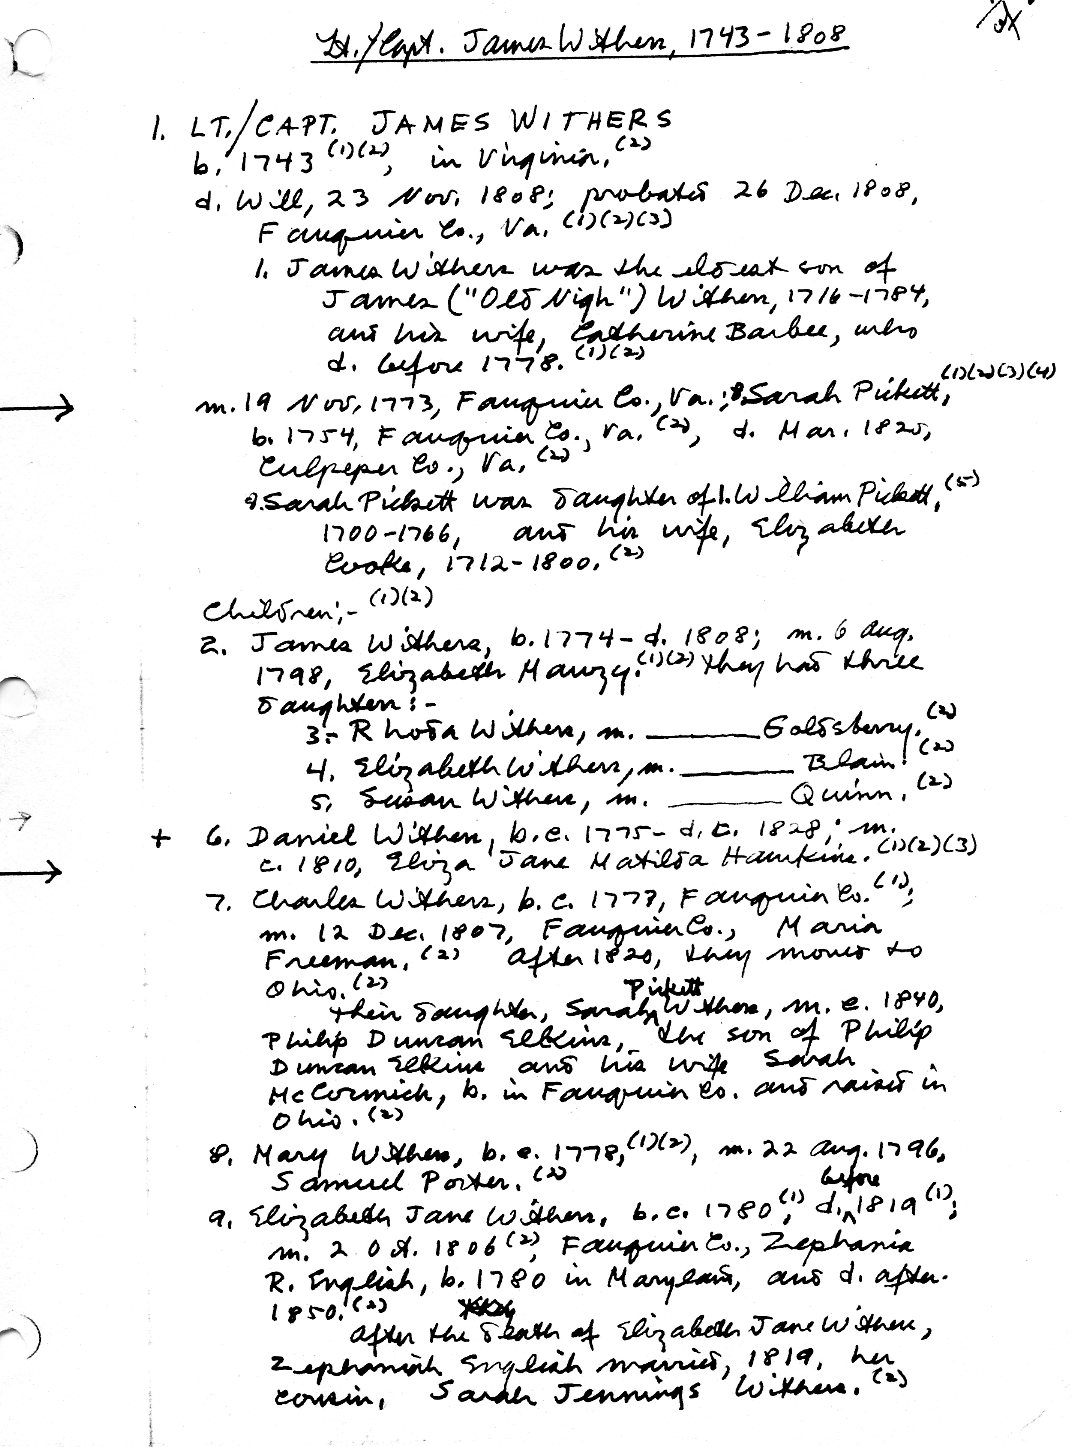 Lt./Capt. James Withers, 1743-1808
1. LT./CAPT. JAMES WITHERS
b. 1743 (1)(2), in Virginia. (2)
d. Will, 23 Nov. 1808; probated 26 Dec. 1808,
Fauquier Co., Va. (1)(2)(3)
1. James Withers was the eldest son of
James ("Old Nigh") Withers, 1716-1784,
and his wife, Catherine Barbee, who
d. before 1778. (1)(2)
m. 19 Nov. 1773, Fauquier Co., Va.; 8. Sarah Pickett, (1)(2)(3)(4)
b. 1754, Fauquier Co., Va. (2), d. Mar. 1820,
Culpeper Co., Va. (2)
8. Sarah Pickett was daughter of 1. William Pickett, (5)
1700-1766, and his wife, Elizabeth
Cooke, 1712-1800. (2)
Children:- (1)(2)
2. James Withers, b. 1774- d. 1808; m. 6 Aug.
1798, Elizabeth Mauzy. (1)(2) They had three
daughters:-
3.- Rhoda Withers, m. ______ Goldsberry. (2)
4. Elizabeth Withers, m. ______ Blain. (2)
5. Susan Withers, m. ______ Quinn. (2)
+ 6. Daniel Withers, b.c. 1775- d.c. 1828; m.
c. 1810, Eliza Jane Matilda Hawkins. (1)(2)(3)
7. Charles Withers, b.c. 1777, Fauquier Co. (1);
m. 12 Dec. 1807, Fauquier Co., Maria
Freeman. (2) After 1820, they moved to
Ohio. (2)
Their daughter, Sarah Pickett Withers, m. c. 1840,
Philip Duncan Elkins, the son of Philip
Duncan Elkins and his wife Sarah
McCormick, b. in Fauquier Co. and raised in
Ohio. (2)
8. Mary Withers, b.c. 1778, (1)(2), m. 22 Aug. 1796,
Samuel Porter. (2)
9. Elizabeth Jane Withers, b.c. 1780 (1), d. before 1819 (1);
m. 2 Oct. 1806 (2), Fauquier Co., Zephania
R. English, b. 1780 in Maryland, and d. after
1850. (2)
After the death of Elizabeth Jane Withers,
Zephaniah English married, 1819, her
cousin, Sarah Jennings Withers. (2)